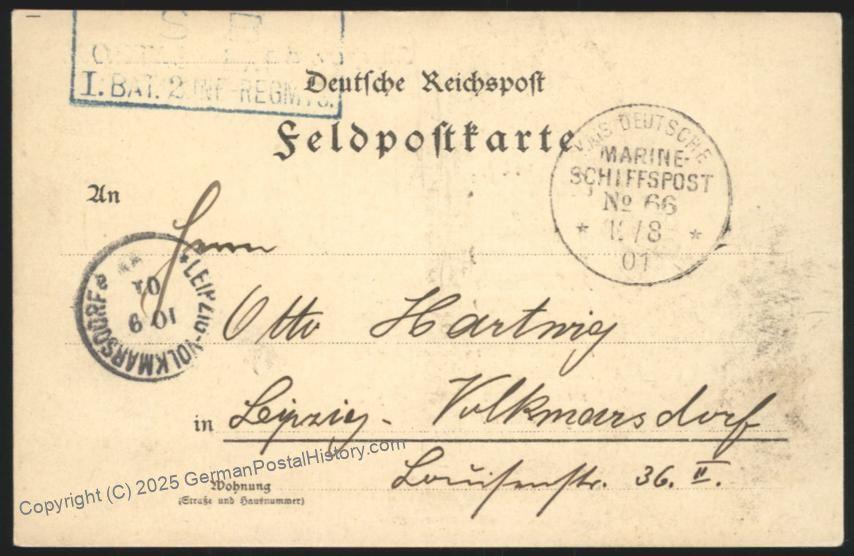 S B
I. BAT. 2. INF-REGMTS.
Deutsche Reichspost
Feldpostkarte
KAIS. DEUTSCHE
MARINE-
SCHIFFSPOST
No 66
* /8 *
01
An
Herrn
* LEIPZIG-VOLKMARSDORF *
10 9
01
Otto Hartwig
in Leipzig-Volkmarsdorf
Louisenstr. 36. II.
Wohnung
(Straße und Hausnummer)
Copyright (C) 2025 GermanPostalHistory.com